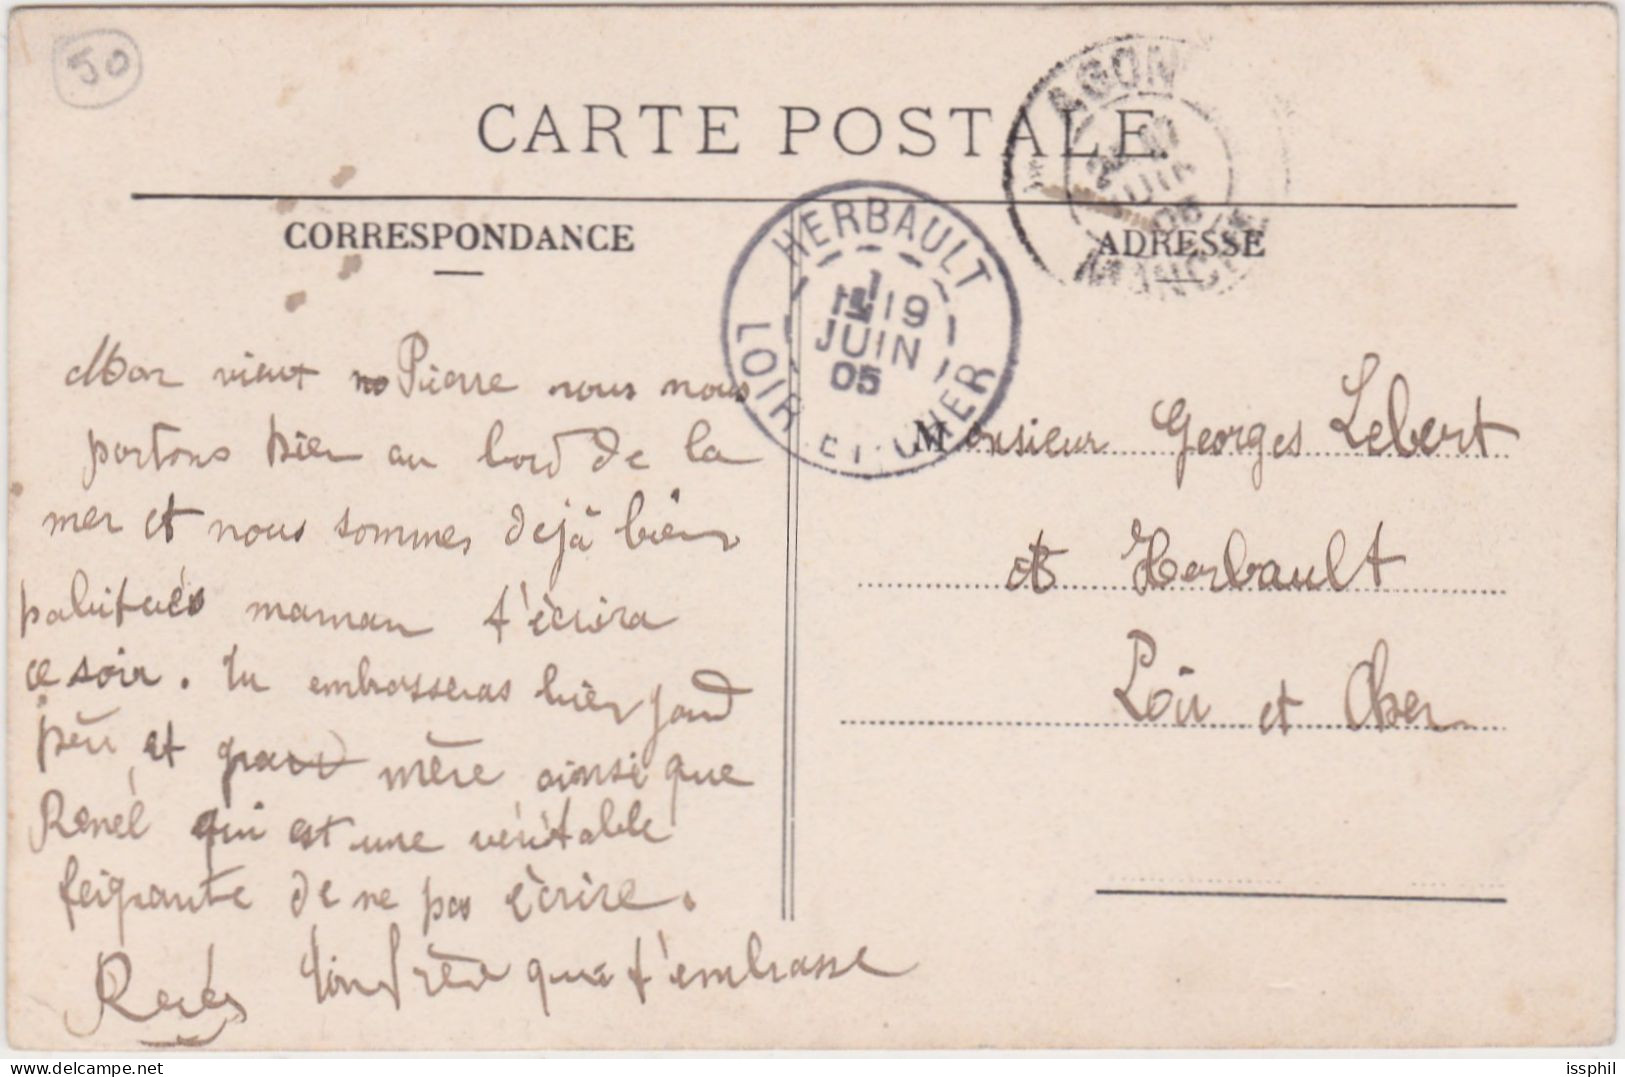 50
CARTE POSTALE
CORRESPONDANCE
ADRESSE
AGON
JUIN
05
MANCHE
HERBAULT
19
JUIN
05
LOIR ET CHER
Mon vieux Pierre nous nous
portons bien au bord de la
mer et nous sommes dejà bien
habitués maman t'écrira
ce soir. Tu embrasseras bien grand
père et grand mère ainsi que
René qui est une véritable
feignante de ne pas écrire.
Ton frère qui t'embrasse
Monsieur Georges Lebert
à Herbault
Loir et Cher
issphil